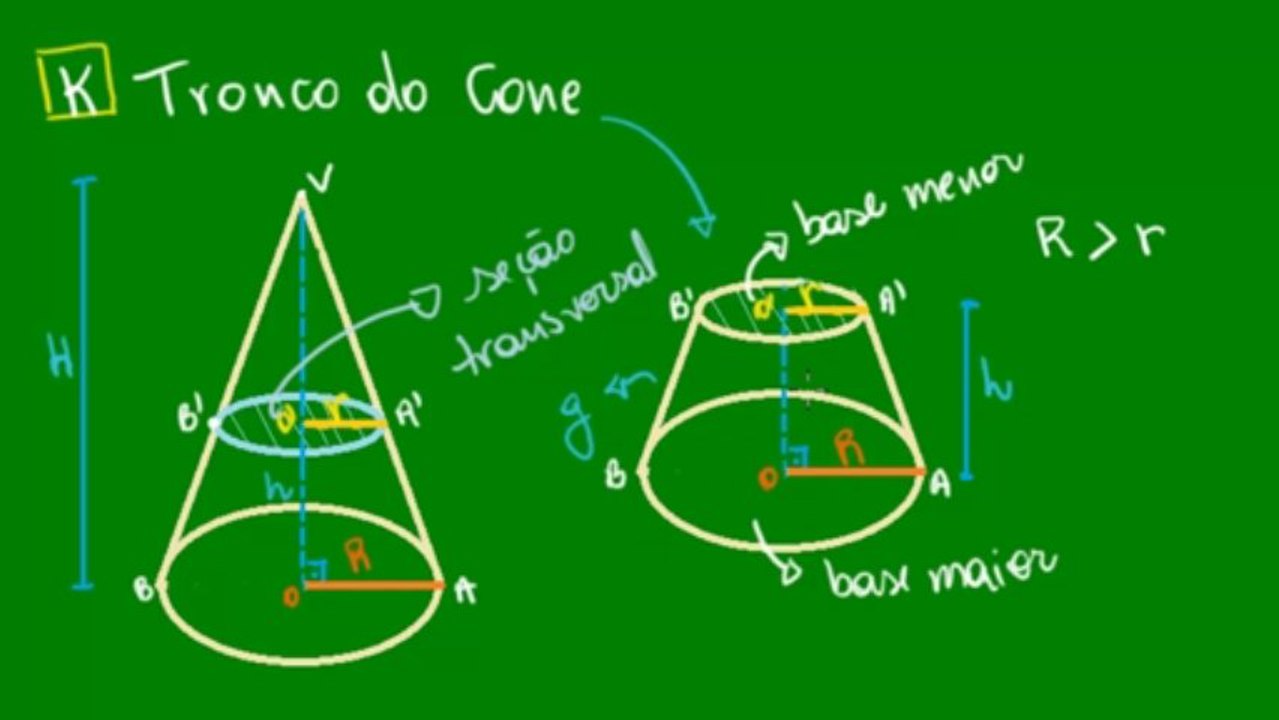 K Tronco do Cone
V
base menor
R > r
seção
transversal
H
B' O' r A'
h
R
B O A
B' O' r A'
g
h
R
B O A
base maior